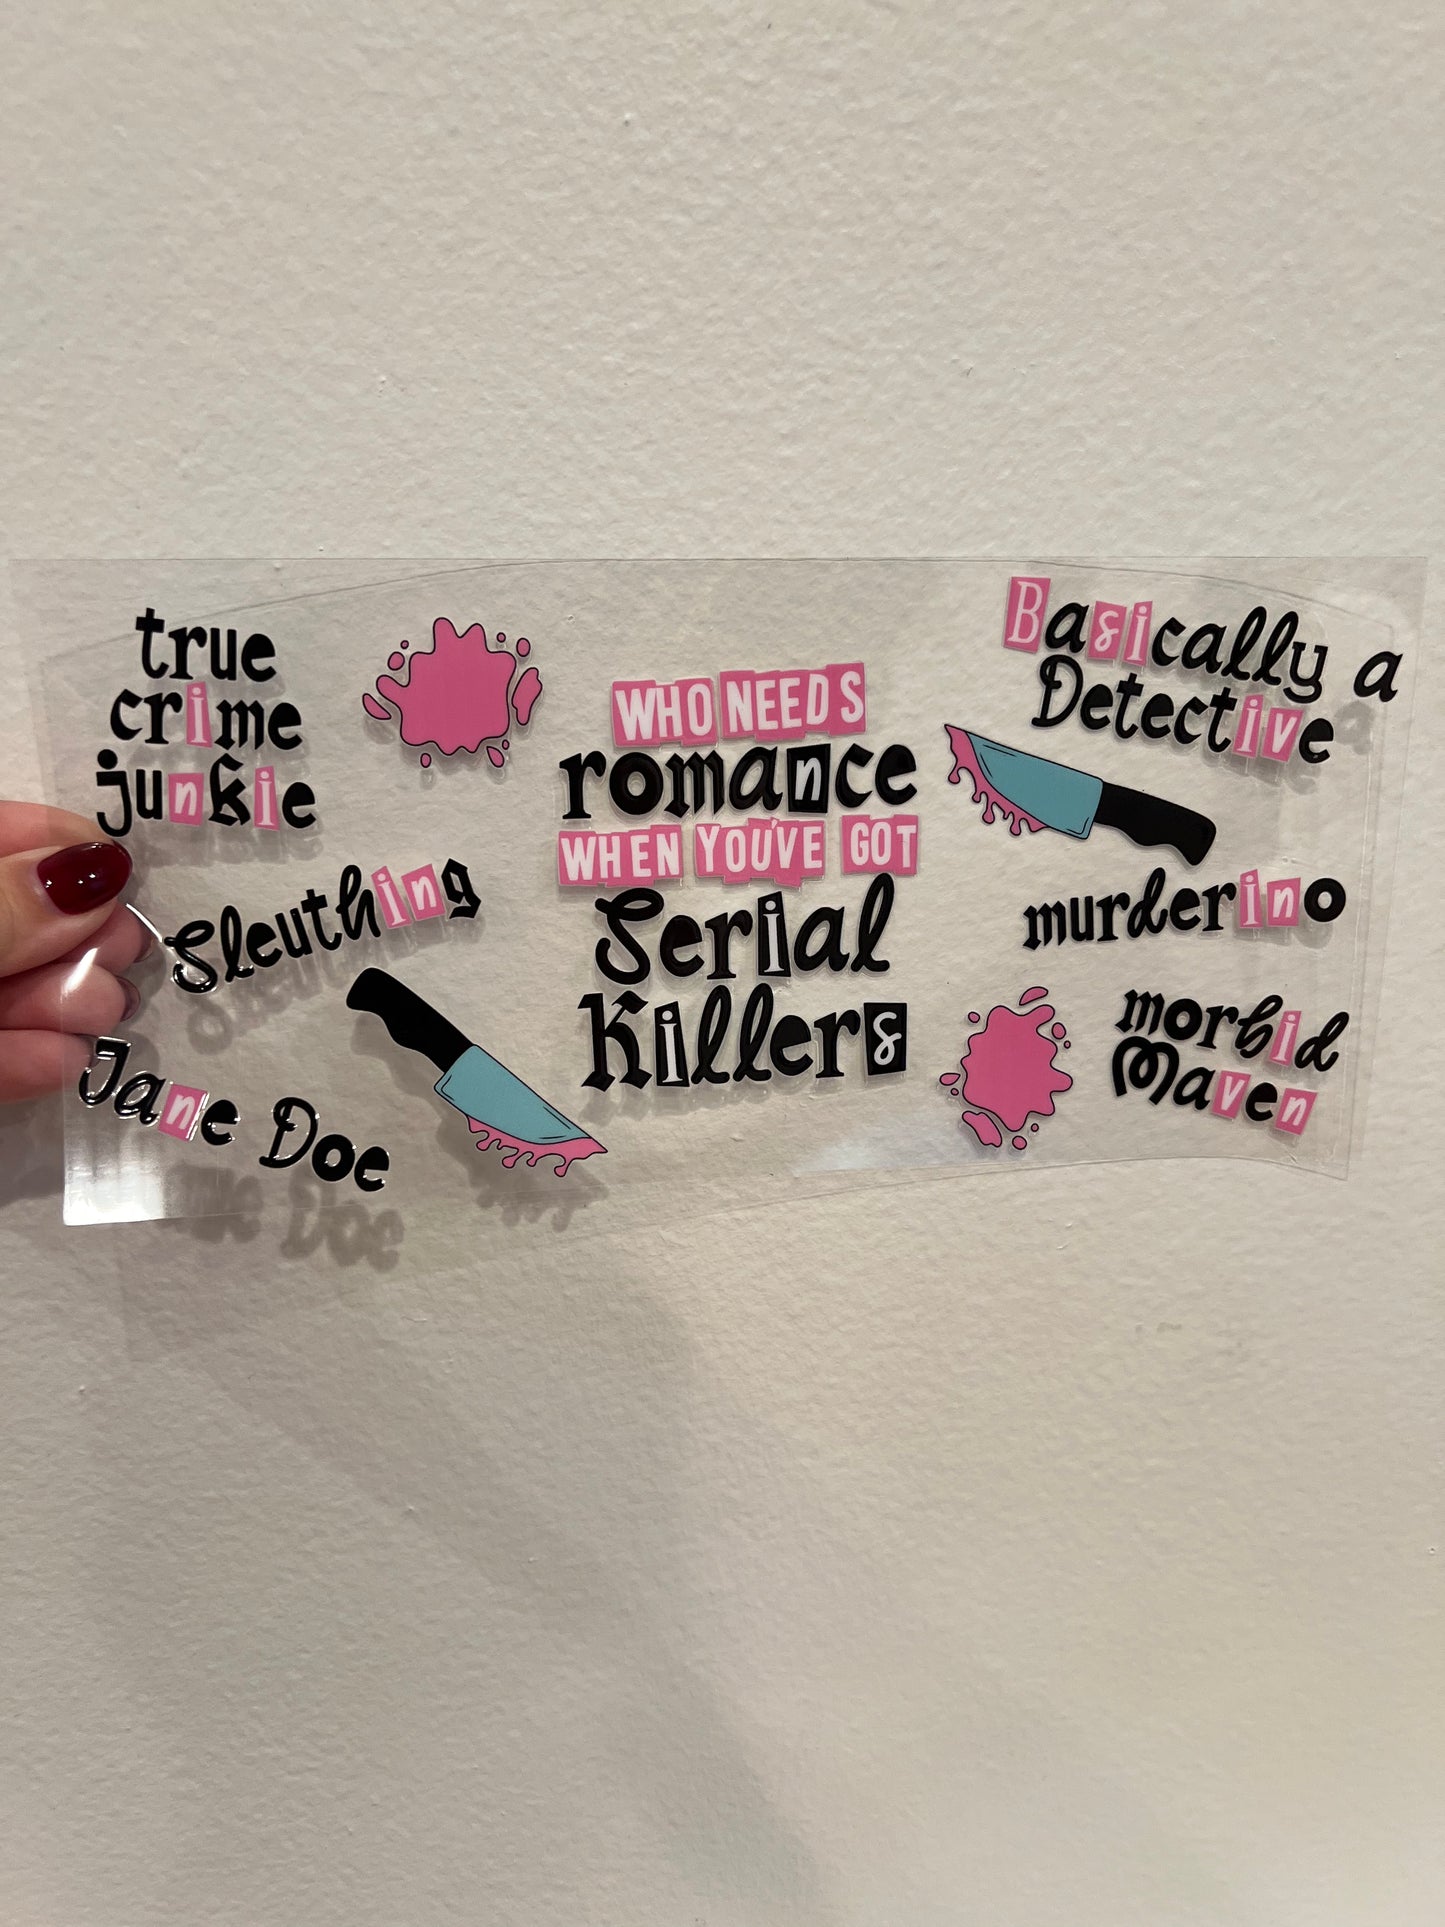 true
crime
junkie
Sleuthing
Jane Doe
WHO NEEDS
romance
WHEN YOU'VE GOT
Serial
Killers
Basically a
Detective
murderino
morbid
Maven